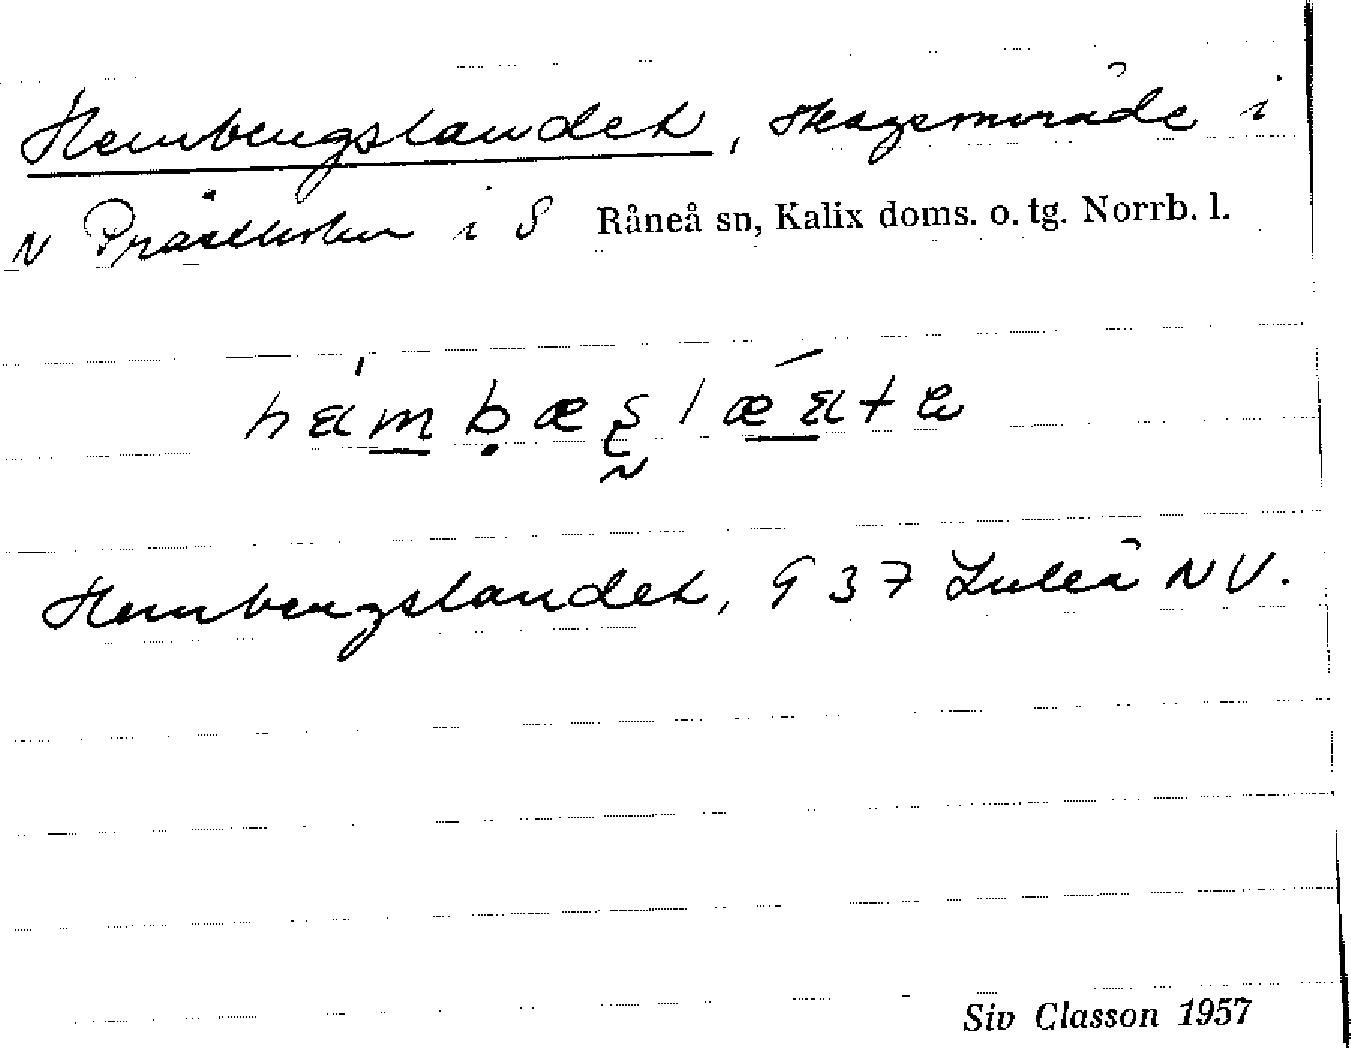 Hembergslandet, skogsområde i
N Prästholm i S Råneå sn, Kalix doms. o. tg. Norrb. l.
Hembergslandet, 9 37 Luleå NV.
Siv Classon 1957